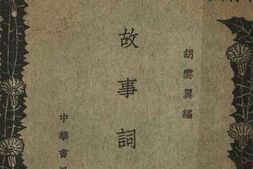 胡雲翼編
故事詞
中華書